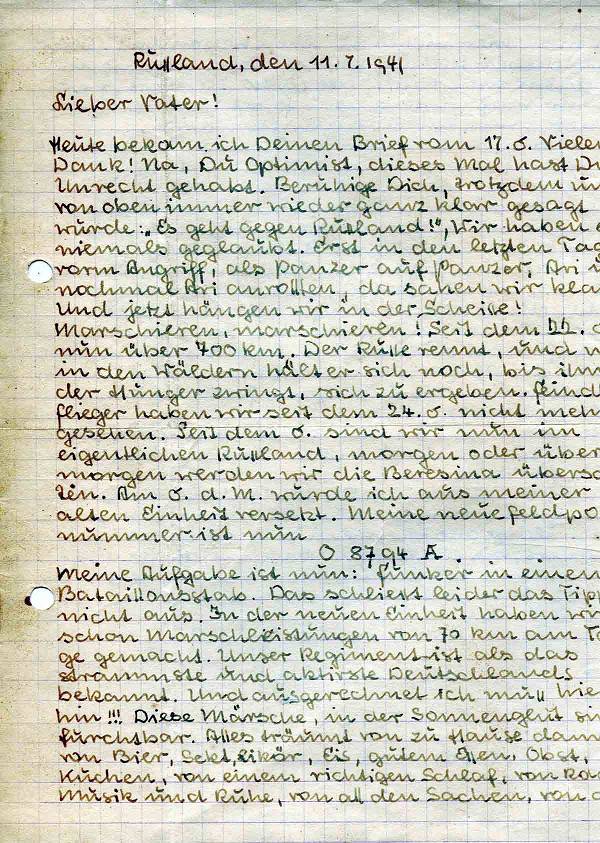 Rußland, den 11.7.1941
Lieber Vater!
Heute bekam ich Deinen Brief vom 17.6. Vielen
Dank! Na, Du Optimist, dieses Mal hast Du
Unrecht gehabt. Beruhige Dich, trotzdem un
von oben immer wieder ganz klar gesagt
wurde: „Es geht gegen Rußland!", Wir haben e
niemals geglaubt. Erst in den letzten Tag
vorm Angriff, als Panzer auf Panzer, Ari u
nochmal Ari anrollten, da sahen wir kla
Und jetzt hängen wir in der Scheiße!
Marschieren, marschieren! Seit dem 22. 6
nun über 700 km. Der Russe rennt, und n
in den Wäldern hält er sich noch, bis ihn
der Hunger zwingt, sich zu ergeben. Feind
flieger haben wir seit dem 24.6. nicht meh
gesehen. Seit dem 6. sind wir nun im
eigentlichen Rußland, morgen oder über
morgen werden wir die Beresina übersc
ten. Am 6. d. M. wurde ich aus meiner
alten Einheit versetzt. Meine neue Feldpo
nummer ist nun
O 8794 A.
Meine Aufgabe ist nun: Funker in einem
Bataillonsstab. Das schließt leider das Tipp
nicht aus. In der neuen Einheit haben wir
schon Marschleistungen von 70 km am Ta
ge gemacht. Unser Regiment ist als das
strammste und aktivste Deutschlands
bekannt. Und ausgerechnet ich muß hie
hin!!! Diese Märsche, in der Sonnenglut sin
furchtbar. Alles träumt von zu Hause dann
von Bier, Sekt, Likör, Eis, gutem Essen, Obst,
Kuchen, von einem richtigen Schlaf, von Rad
Musik und Ruhe, von all den Sachen, von d